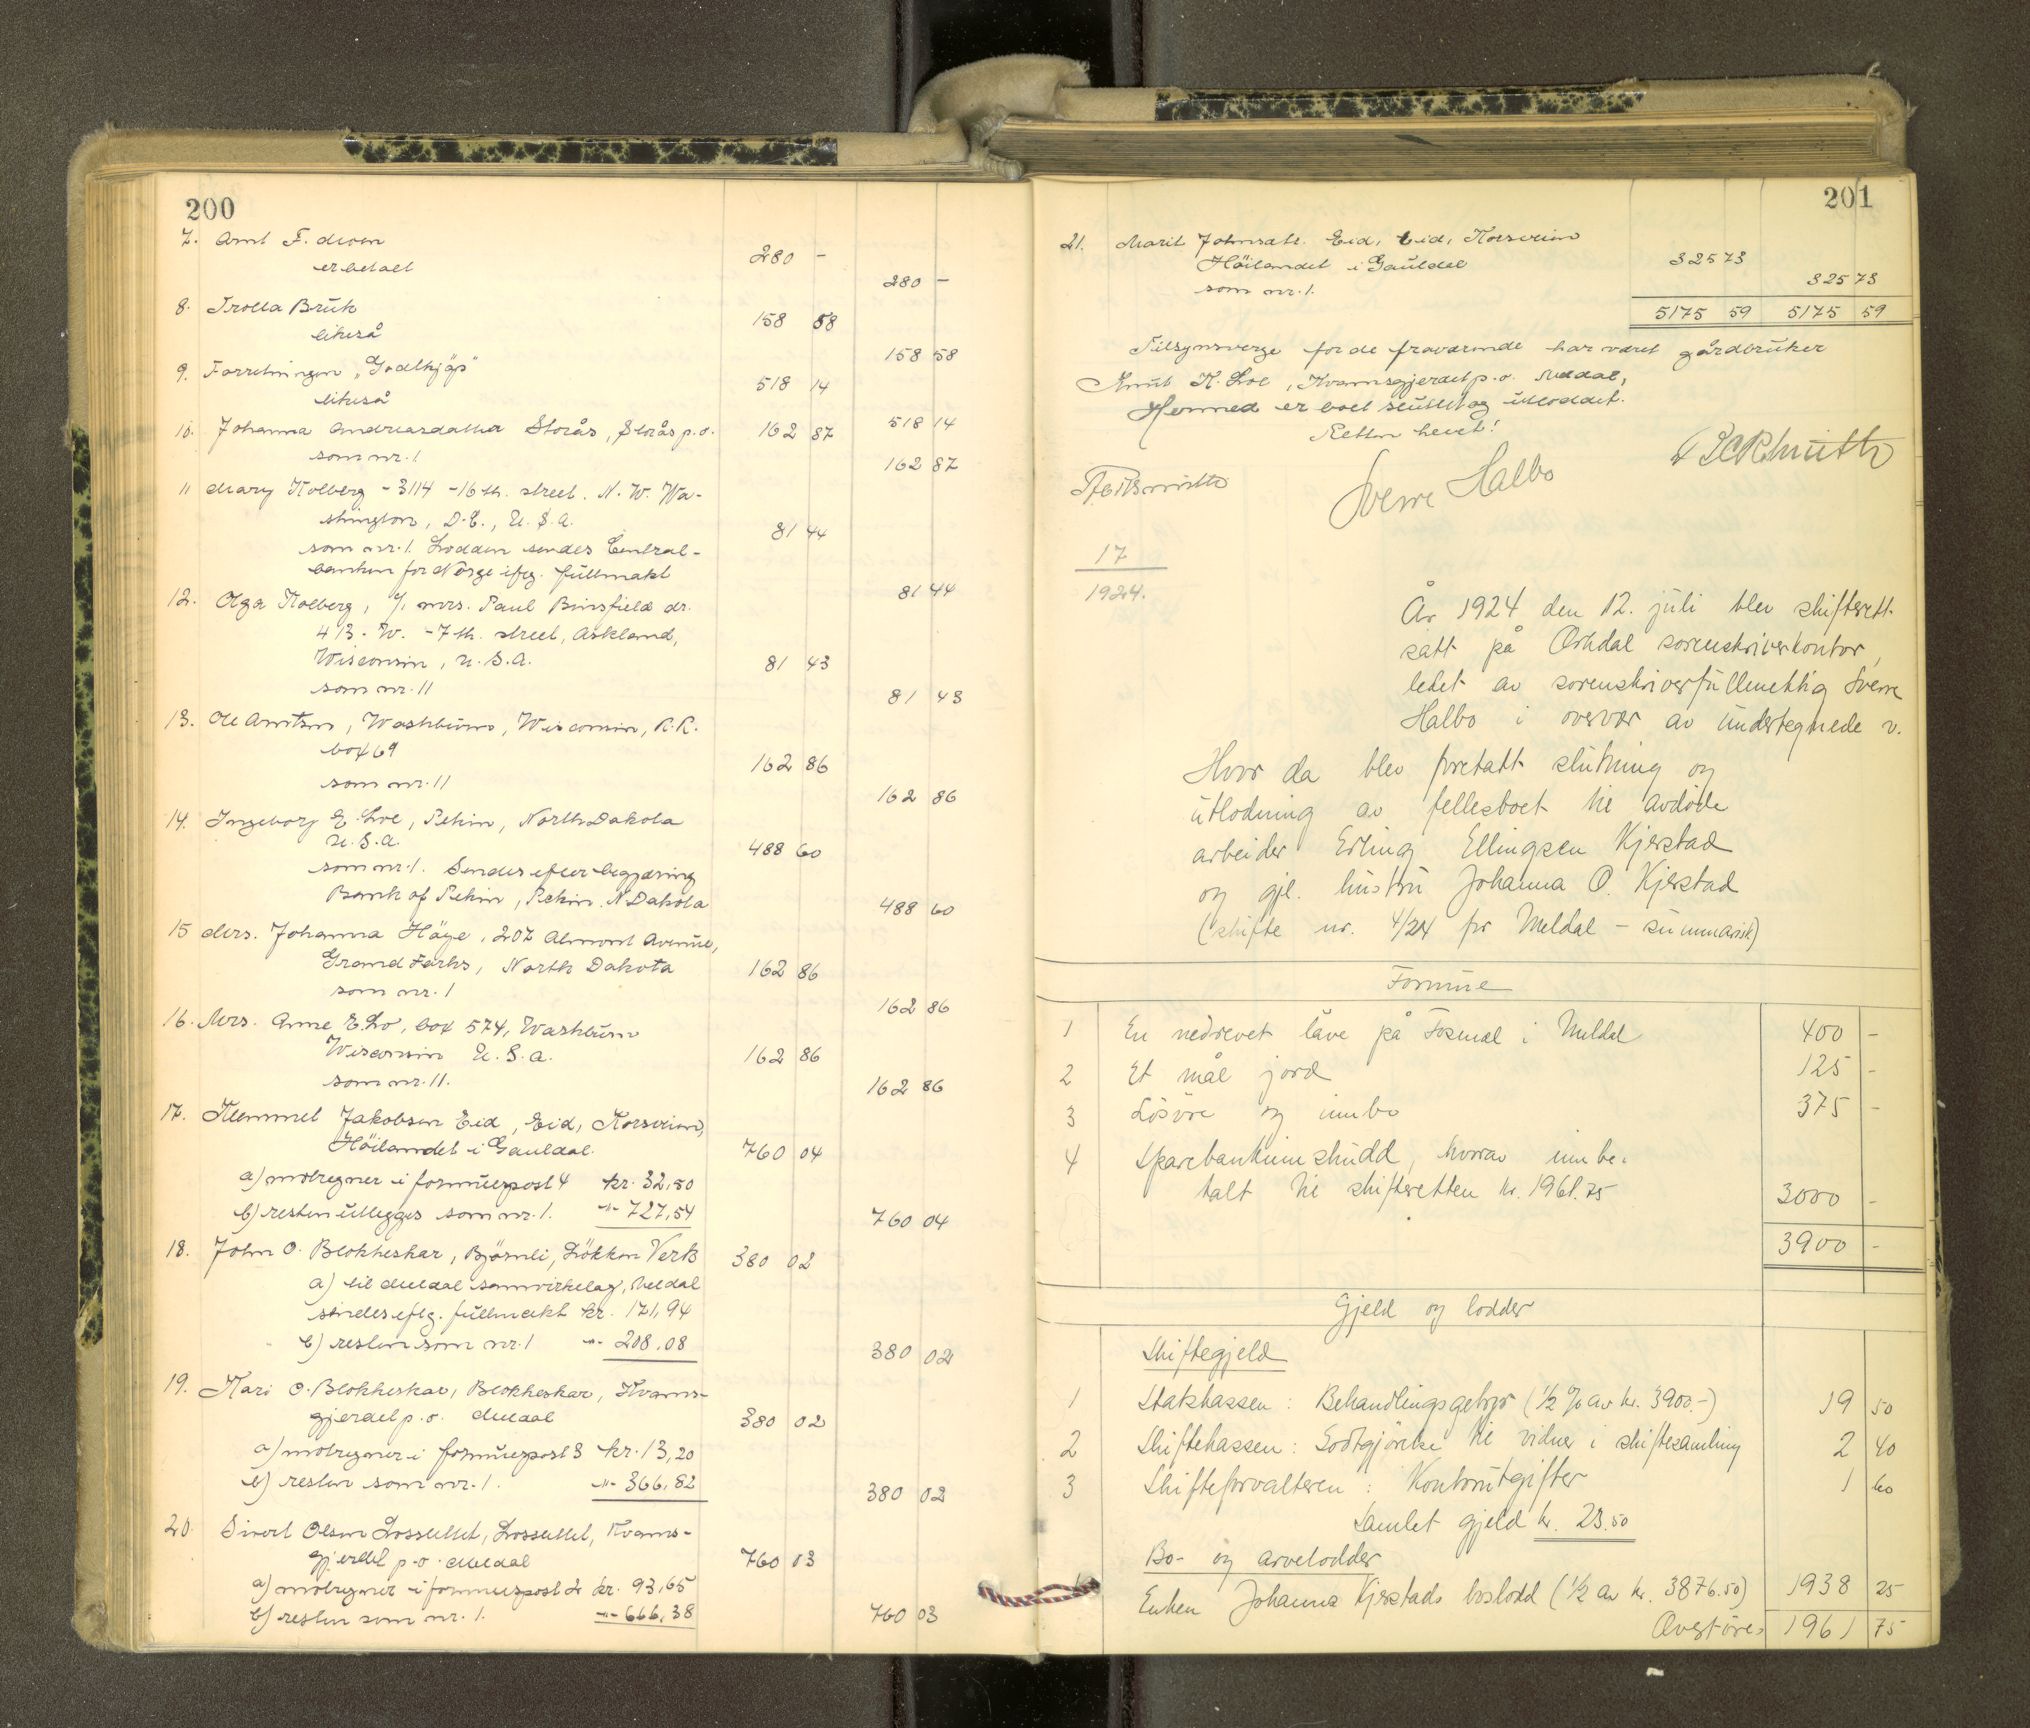 200
7. Arnt F. Moen 280 -
er betalt 280 -
8. Trolla Bruk 158 58
likeså 158 58
9. Forretningen „Godtkjøp" 518 14
likeså 518 14
10. Johanna Andreasdatter Storås, Storås p.o. 162 87
som nr. 1 162 87
11 Mary Kolberg - 3114 - 16 th. street. N. W. Wa-
shington, D.C., U.S.A. 81 44
som nr. 1. Lodden sendes Central-
banken for Norge iflg. fullmakt 81 44
12. Olga Kolberg, c/, mrs. Paul Binsfield dr.
413 - W. - 7 th. street, Askland,
Wisconsin, U.S.A. 81 43
som nr. 11 81 43
13. Ole Arntsen, Washburn, Wisconsin, R.R.
box 69 162 86
som nr. 11 162 86
14. Ingeborg E Loe, Pekin, North Dakota
U.S.A. 488 60
som nr. 1. Sendes efter begjæring
Bank of Pekin, Pekin N. Dakota 488 60
15 Mrs. Johanna Høye, 207 Almont Avenue,
Grand Forks, North Dakota 162 86
som nr. 1 162 86
16. Mrs. Anne E. Lo, box 574, Washburn
Wisconsin U.S.A. 162 86
som nr. 11. 162 86
17. Klemmet Jakobsen Eid, Eid, Korsveien,
Höilandet i Gauldal. 760 04
a) motregner i formuespost 4 kr. 32,50
b) resten utlegges som nr. 1. -"- 727,54 760 04
18. John O. Blokheskar, Bjørnli, Løkken Verk 380 02
a) til Meldal samvirkelag, Meldal
sendes eflg. fullmakt kr. 171,94
b) resten som nr. 1 -"- 208,08 380 02
19. Kari O. Blokheskar, Blokheskar, Kvams-
gjerdet p.o. Meldal 380 02
a) motregner i formuespost 3 kr. 13,20
b) resten som nr. 1. -"- 366,82 380 02
20. Sivert Olsen Losseletet, Losseletet, Kvams-
gjerdet p.o. Meldal 760 03
a) motregner i formuespost 2 kr. 93,65
b) resten som nr. 1. -"- 666,38 760 03
201
21. Marit Johnsdtr. Eid, Eid, Korsveien
Höilandet i Gauldal 325 73
som nr. 1. 325 73
5175 59 5175 59
Tilsynsverge for de fraværende har været gårdbruker
Knut K. Loe, Kvamsgjerdet p.o. Meldal,
Hermed er boet sluttet og utloddet.
Retten hevet!
Sverre Halbo
17
1924.
År 1924 den 12. juli blev skifterett
satt på Orkdal sorenskriverkontor,
ledet av sorenskriverfullmektig Sverre
Halbo i overvær av undertegnede v.
Hvor da blev foretatt slutning og
utlodning av fellesboet til avdøde
arbeider Erling Ellingsen Kjerstad
og gjl. hustru Johanna O. Kjerstad
(skifte nr. 4/24 for Meldal - summarisk)
Formue
1 En nedrevet låve på Fosmoel i Meldal 400 -
2 Et mål jord 125 -
3 Løsøre og innbo 375 -
4 Sparebankinnskudd, hvorav innbe-
talt til skifteretten kr. 1961.75 3000 -
3900 -
Gjeld og lodder
Skiftegjeld
1 Statskassen: Behandlingsgebyr (1/2 % av kr. 3900.-) 19 50
2 Skiftekassen: Godtgjørelse til vidner i skiftesamling 2 40
3 Skifteforvalteren: Kontorutgifter 1 60
Samlet gjeld kr. 23.50
Bo- og arvelodder
Enken Johanna Kjerstads boslodd (1/2 av kr. 3876.50) 1938 25
Overføres 1961 75